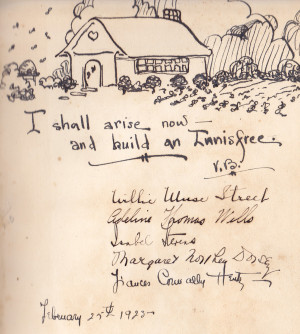 I shall arise now —
and build an Innisfree.
V.B.
Willie Muse Street
Adeline Thomas Wells
Isabel Stevens
Margaret Dorsey
Frances Connally
February 25th 1925